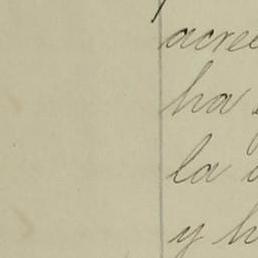 acree
ha
la
y h